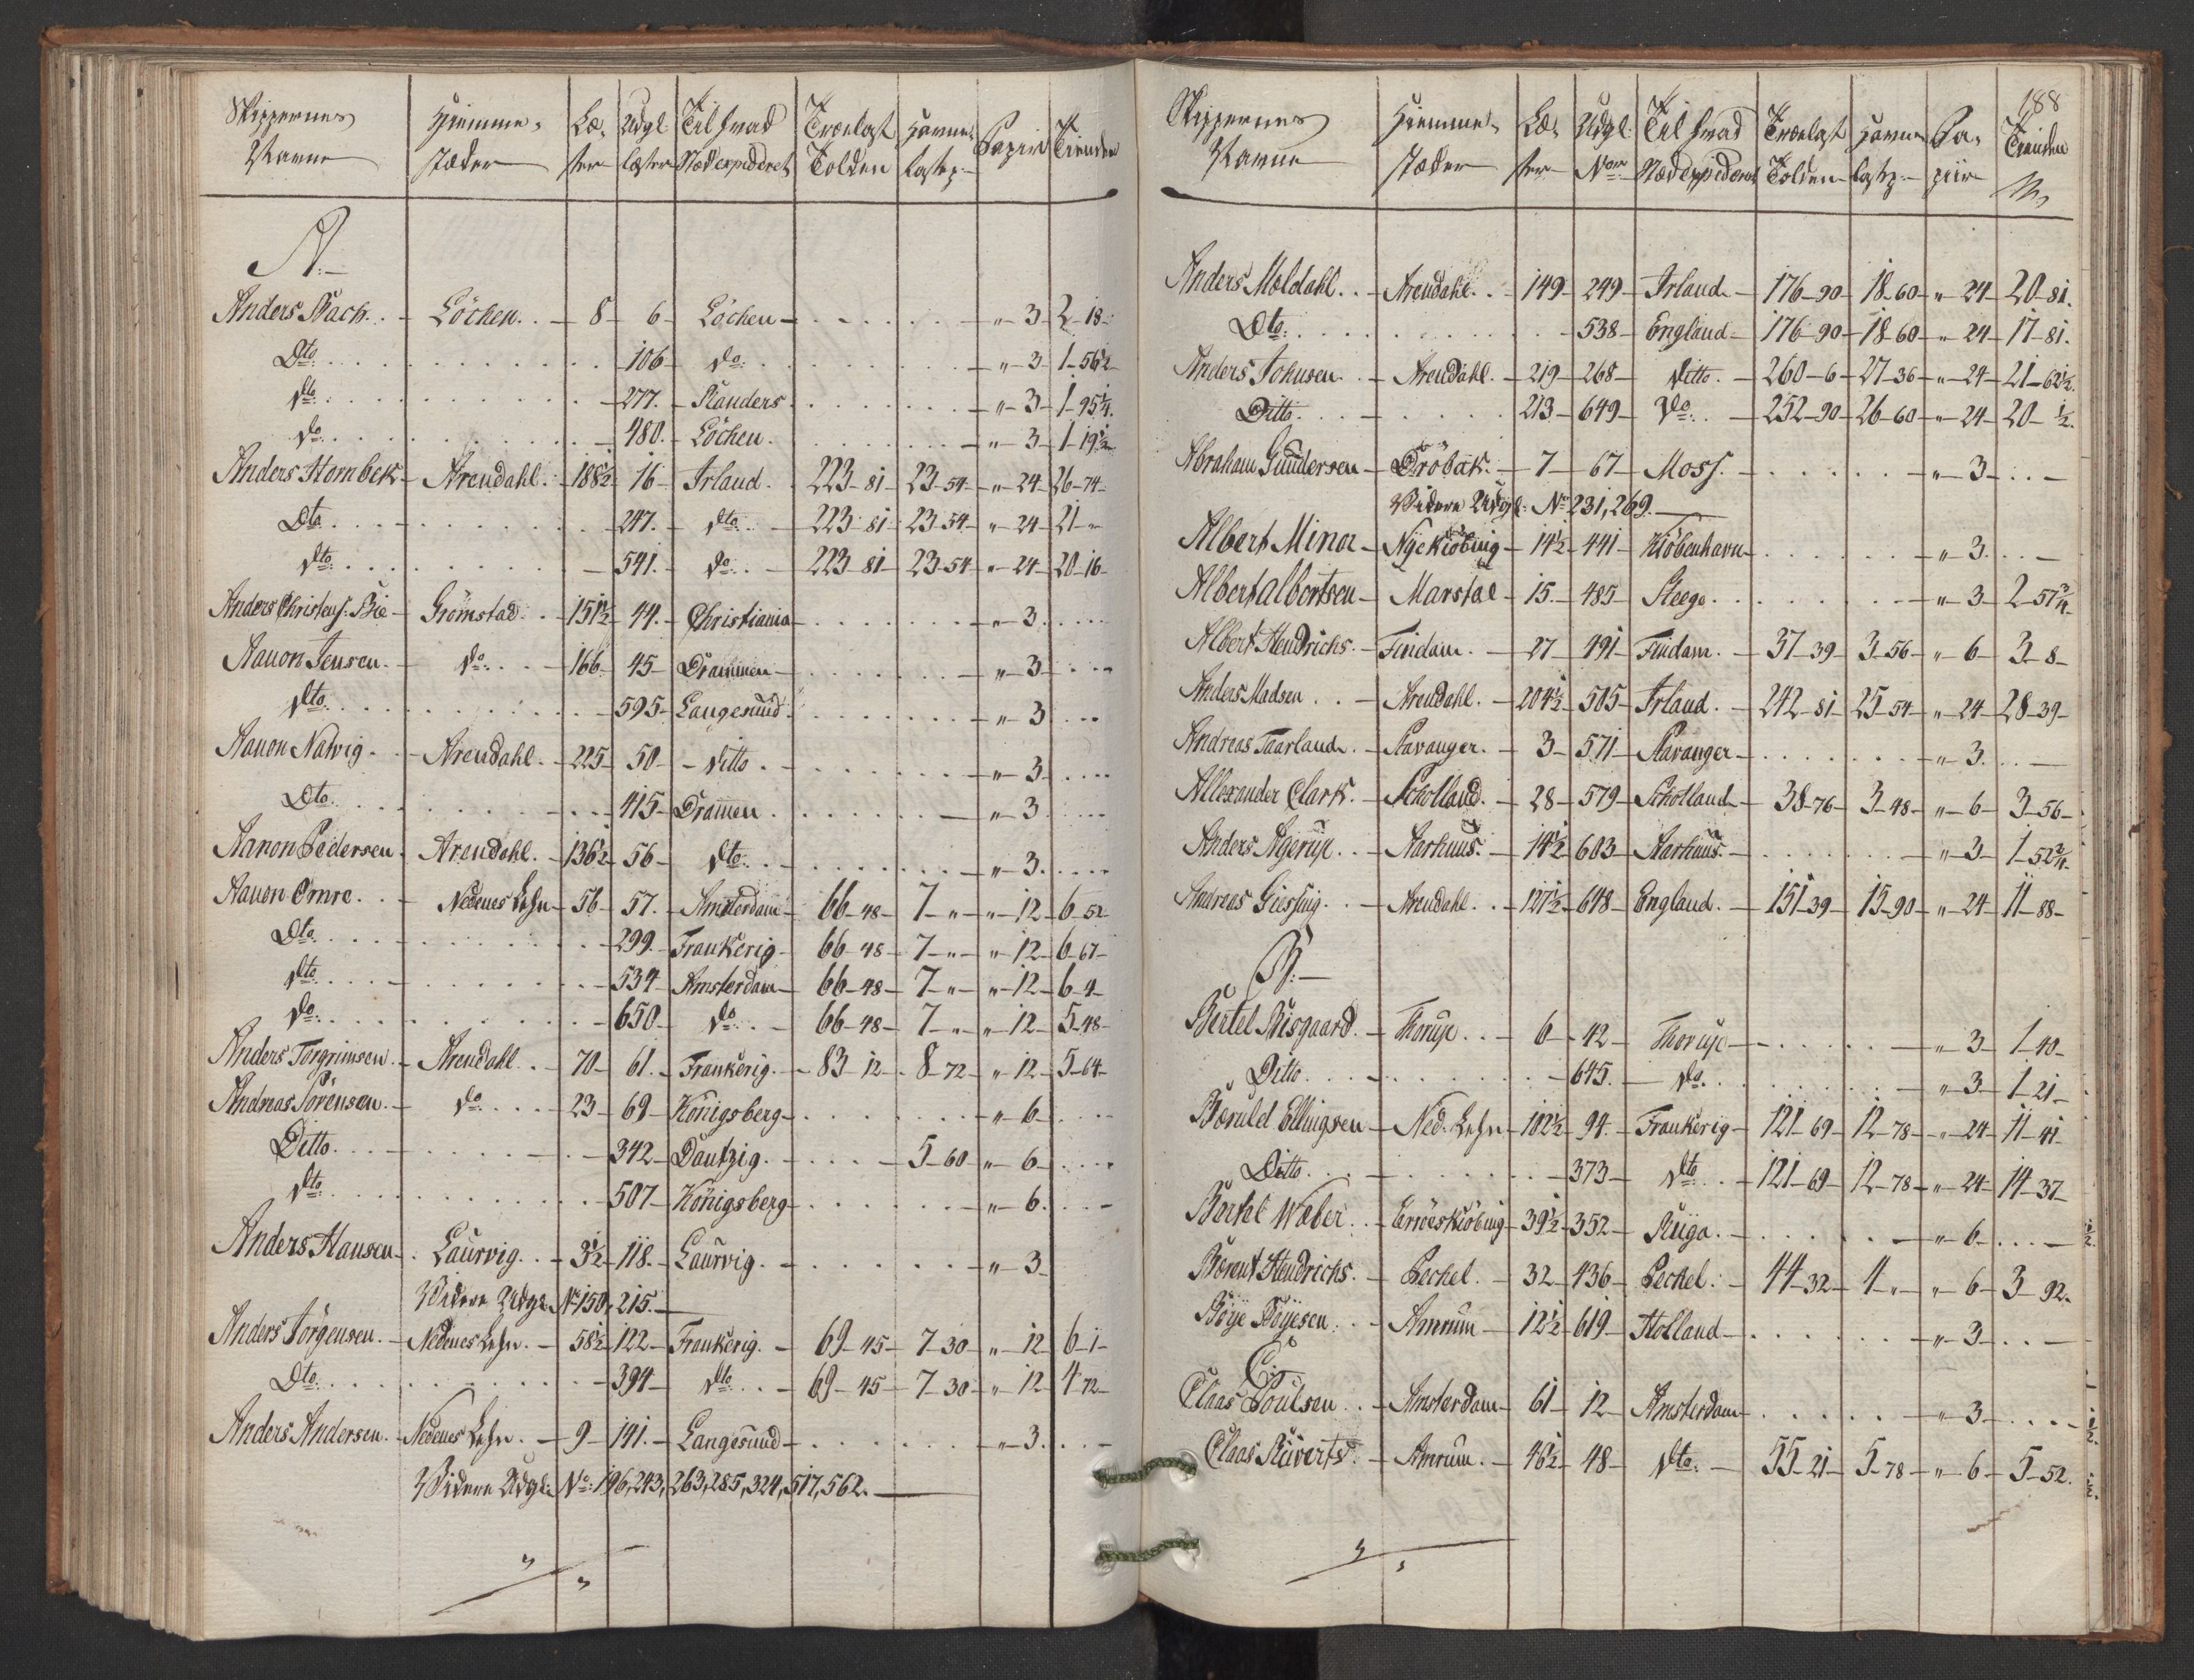 Skippernes Hiemme- Læ- Udgl Til hvad Trælast Havne Papiir Tienden
Navne stæder ster læster Stæd expederet Tolden lastp:
A:
Anders Bach. Löcken. 8 6 Löcken " 3 2-18
Dto: 106 do: " 3 1-56½
dto: 277. Randers " 3 1-95¼
do: 480. Löcken. " 3 1-19½
Anders Hornbek Arendahl. 188½ 16 Irland. 223-81 23-54 " 24 26-74
Dto. 247. dto: 223-81 23-54 " 24 21-"
dto: 541. do. 223-81 23-54 " 24 20-16
Anders Christens. Bie Grömstad 151½ 44. Christiania " 3
Aanon Jensen. do: 166 45 Drammen " 3
dto. 595 Langesund " 3
Aanon Natvig. Arendahl. 225 50 ditto. " 3
Dto. 415 Dramen. " 3
Aanon Pedersen. Arendahl. 136½ 56 dto. " 3
Aanon Omre. Nedenes Lehn 56 57. Amsterdam 66-48 7-" " 12 6-52
Dto. 299. Frankerig 66-48 7-" " 12 6-67
dto. 534 Amsterdam 66-48 7-" " 12 6-4
do: 650 do. 66-48 7-" " 12 5-48
Anders Torgrimsen. Arendahl. 70 61. Frankerig. 83-12 8-72 " 12 5-64
Andreas Sörensen. do. 23 69 Königsberg " 6
Ditto. 342 Dantzig. 5-60 " 6
dto. 507 Königsberg " 6
Anders Hansen. Laurvig. 3½ 118. Laurvig. " 3
Videre Udgl. No 150, 215.
Anders Jörgensen. Nedenes Lehn. 58½ 122 Frankerig. 69-45 7-30 " 12 6-1
Dto: 394 dto. 69-45 7-30 " 12 4-72
Anders Andersen. Nedenes Lehn. 9 141. Langesund " 3
Videre Udgl: No: 196, 243, 263, 285, 324, 517, 562.
188
Skippernes Hiemme- Læ- Udgl. Til hvad Trælast Havne Pa- Tienden
Navne stæder ster Nor Stæd expederet Tolden lastp: piir
Anders Moldahl. Arendahl. 149 249 Irland 176-90 18-60 " 24 20-81.
Dto: 538 England 176-90 18-60 " 24 17-81.
Anders Johnsen. Arendahl. 219 268 ditto. 260-6 27-36 " 24 21-62½
Ditto. 213 649 do: 252-90 26-60 " 24 20-½
Abraham Gundersen Dröbak. 7 67 Moss. " 3
Videre Udgl: No 231, 269.
Albert Minor Nyekiöbing 14½ 441 Kiöbenhavn " 3
Albert Albertsen Marstal 15. 485 Steege. " 3 2-57¾
Albert Hendrichs. Tindam. 27 491 Tindam. 37-39 3-56 " 6 3-8
Anders Madsen Arendahl. 204½ 505 Irland. 242-81 25-54 " 24 28-39
Andreas Taarland. Stavanger. 3 571 Stavanger " 3
Allexander Clark. Schotland. 28 579 Schotland 38-76 3-48 " 6 3-56
Anders Agerup. Aarhuus. 14½ 603 Aarhuus. " 3 1-52¾
Andreas Giessing. Arendahl. 127½ 648 England. 151-39 15-90 " 24 11-88
B:
Bertel Bisgaard. Thorup. 6 42 Thorup " 3 1-40
Ditto. 645. do. " 3 1-21
Boruld Ellingsen Ned. Lehn 102½ 94. Frankerig 121-69 12-78 " 24 11-41
Ditto. 373 dto. 121-69 12-78 " 24 14-37
Bertel Weber. Erröeskiöbing 39½ 352 Riiga. " 6
Berent Hendrichs. Peckel. 32 436 Peckel. 44-32 4-" " 6 3-92.
Böye Böyesen. Amrum 12½ 619 Holland " 3
C:
Claas Poulsen. Amsterdam 61 12 Amsterdam " 3
Claas Rüverts. Amrum. 46½ 48 dto. 55-21 5-78 " 6 5-52.